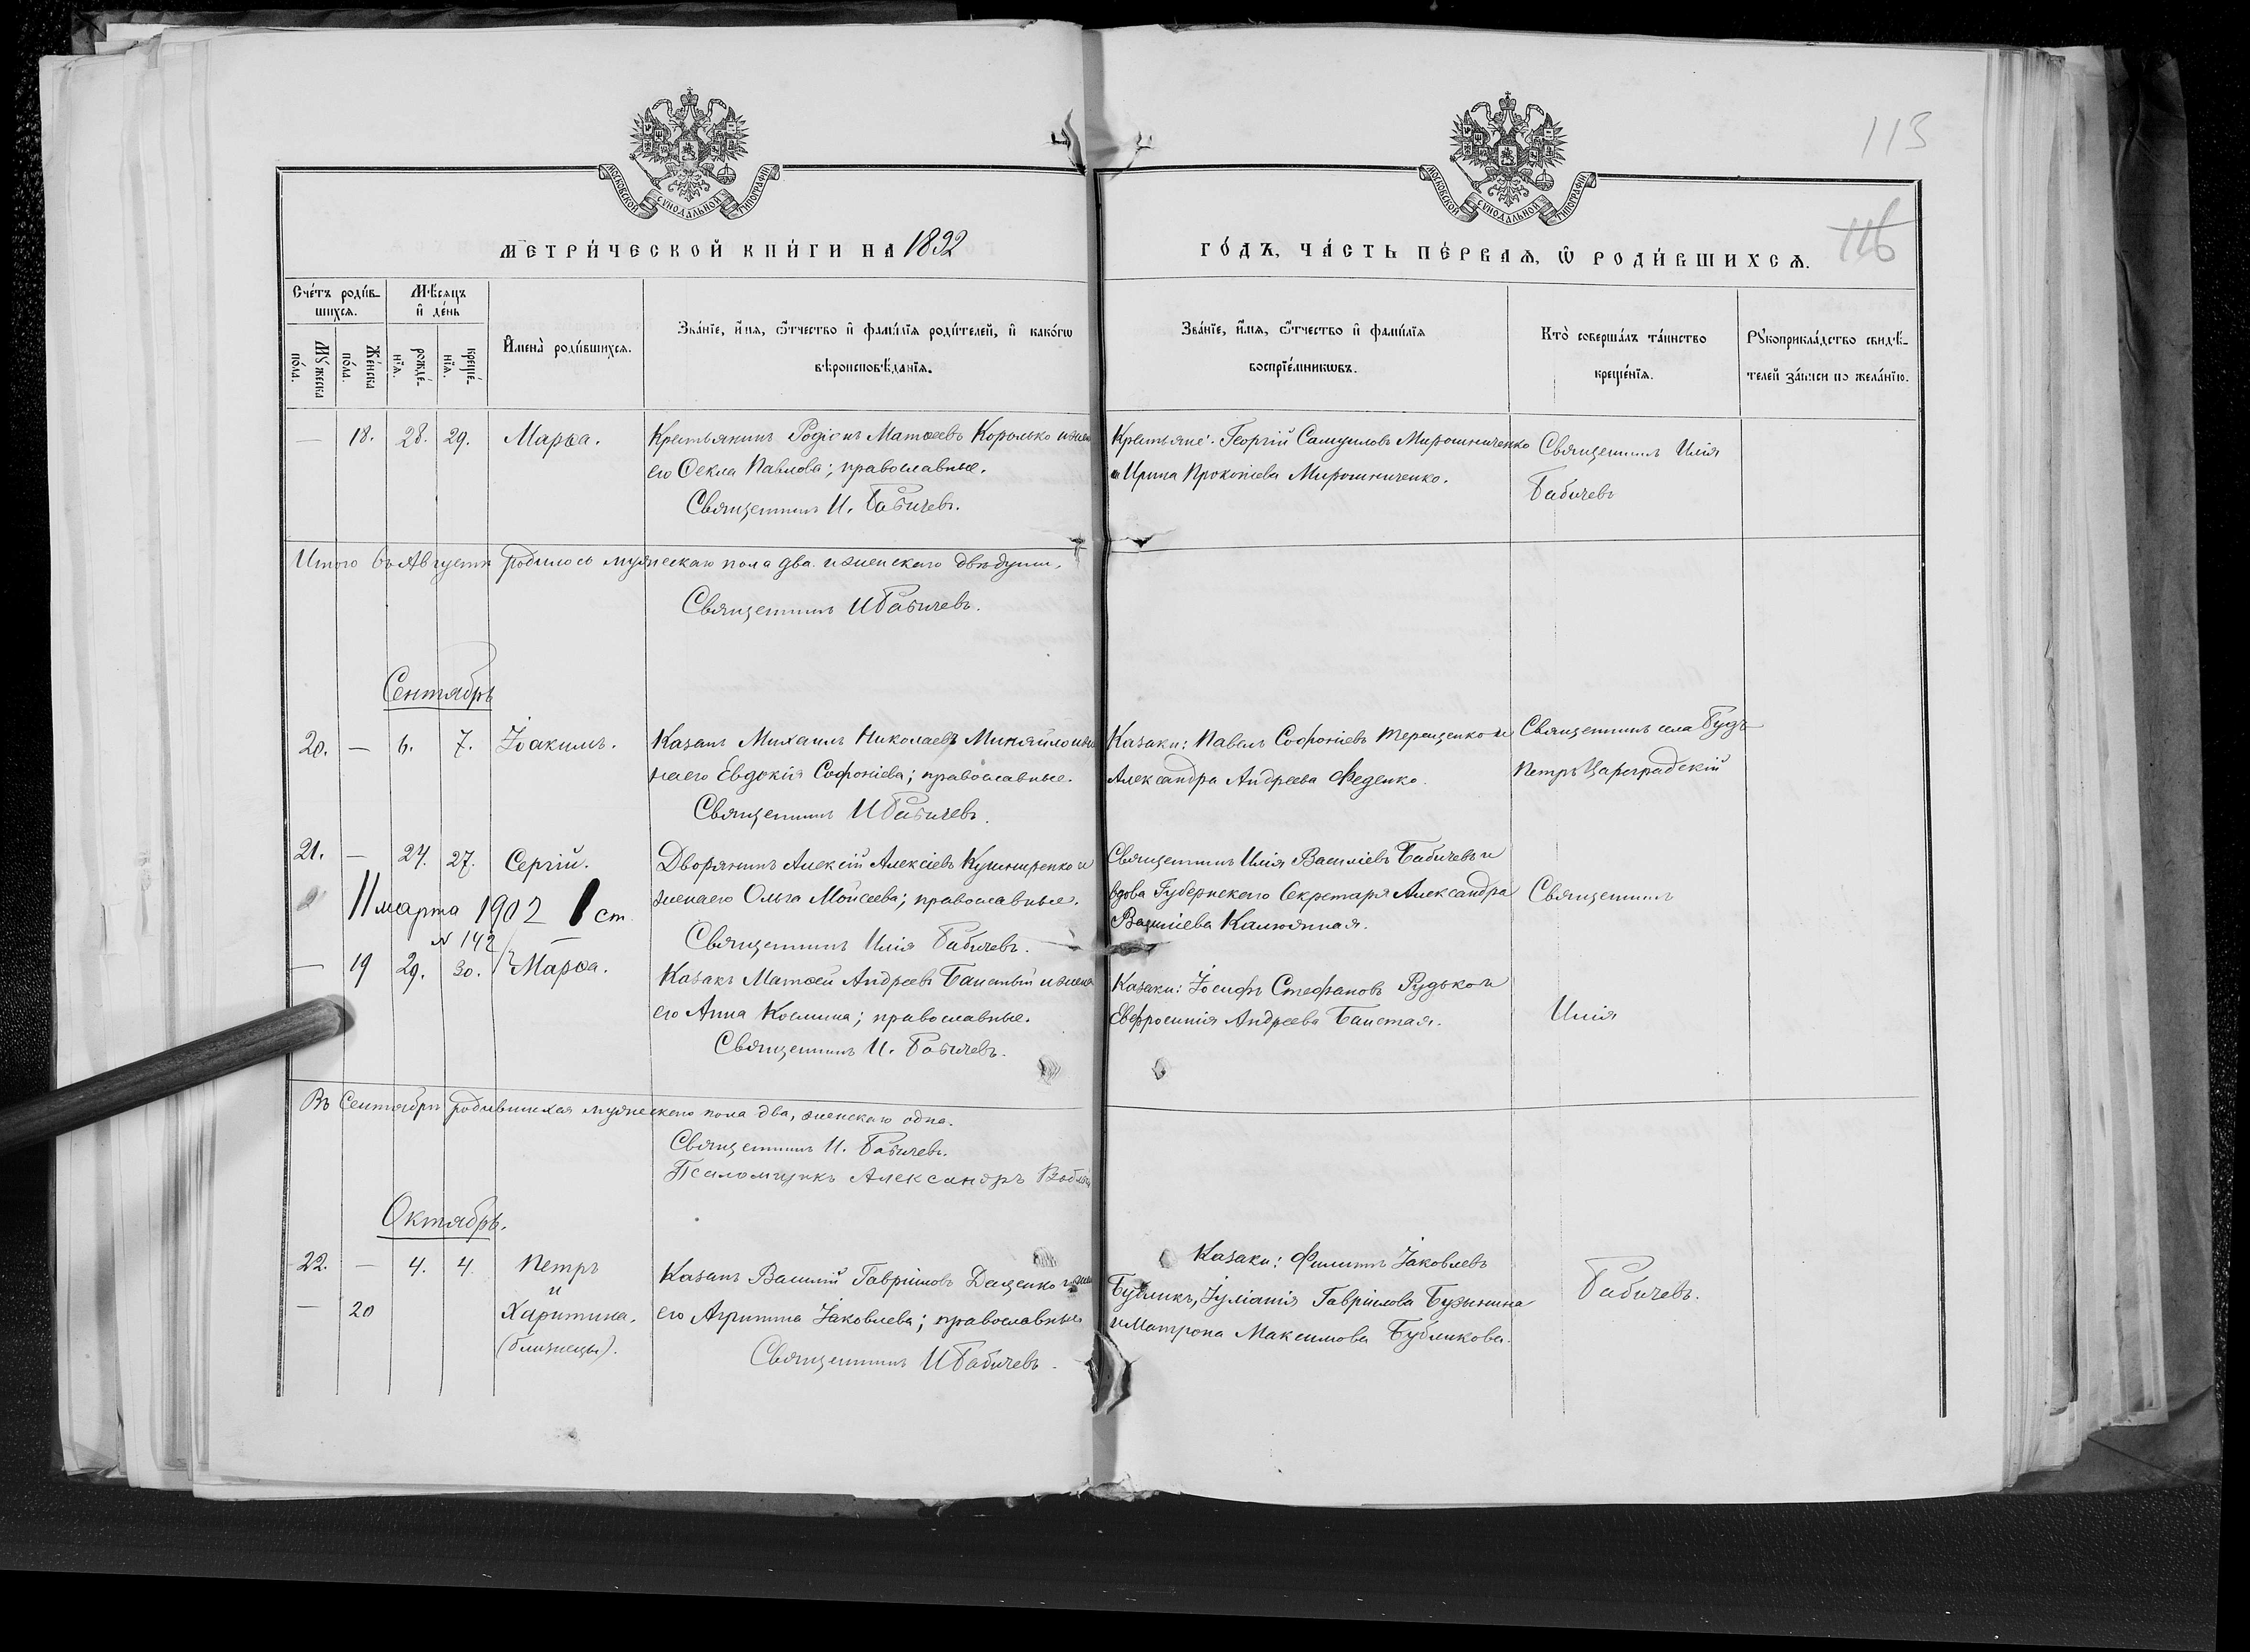 113
116
МОСКОВСКОЙ СѴНОДАЛЬНОЙ ТИПОГРАФІИ
МОСКОВСКОЙ СѴНОДАЛЬНОЙ ТИПОГРАФІИ
МЕТРИ́ЧЕСКОЙ КНИ́ГИ НА 1892
ГО́ДЪ, ЧА́СТЬ ПЕ́РВАѦ, Ѡ҆ РОДИ́ВШИХСѦ.
Сче́тъ роди́в-
шихсѧ.
Мѣ́сѧцъ
и҆ де́нь
Мꙋ́жеска
по́ла.
Же́нска
по́ла.
рожде́-
нїѧ.
креще́-
нїѧ.
И҆мена̀ роди́вшихсѧ.
Зва́нїе, и҆́мѧ, ѻ҆́тчество и҆ фами́лїѧ роди́телей, и҆ како́гѡ
вѣроисповѣ́данїѧ.
Зва́нїе, и҆́мѧ, ѻ҆́тчество и҆ фами́лїѧ
воспрїе́мникѡвъ.
Кто̀ соверша́лъ та́инство
креще́нїѧ.
Рꙋкоприкла́дство свидѣ́-
телей за́писи по жела́нїю.
— 18. 28. 29. Марѳа.
Крестьянинъ Родіонъ Матѳеевъ Королько и жена
его Ѳекла Павлова; православные.
Священникъ И. Бабичевъ.
Крестьяне: Георгій Самуиловъ Мирошниченко
и Ирина Прокопіева Мирошниченко.
Священникъ Илія
Бабичевъ
Итого въ Августѣ родилось мужескаго пола два и женскаго двѣ души.
Священникъ И Бабичевъ.
Сентябрь
20. — 6. 7. Іоакимъ.
Казакъ Михаилъ Николаевъ Миняйло и же
на его Евдокія Софоніева; православные.
Священникъ И Бабичевъ.
Казаки: Павелъ Софоніевъ Терещенко и
Александра Андреева Феденко.
Священникъ села Будъ
Петръ Цареградскій
21. — 24. 27. Сергій.
Дворянинъ Алексій Алексіевъ Кушниренко и
жена его Ольга Мойсеева; православные.
Священникъ Илія Бабичевъ.
Священникъ Илія Василіевъ Бабичевъ и
вдова Губернскаго Секретаря Александра
Василіева Калюжная.
Священникъ
11 марта 1902 1 ст
N 142
— 19 29. 30. Марѳа.
Казакъ Матѳей Андреевъ Баистый и жена
его Анна Космина; православные.
Священникъ И. Бабичевъ.
Казаки: Іосифъ Стефановъ Рудько и
Евфросинія Андреева Баистая.
Илія
Въ Сентябрѣ родившихся мужескаго пола два, женскаго одна.
Священникъ И. Бабичевъ.
Псаломщикъ Александръ
Октябрь.
22. — 4. 4. Петръ
и
— 20 Харитина.
(близнецы).
Казакъ Василій Гавріиловъ Даценко и жена
его Агриппина Іаковлева; православные
Священникъ И Бабичевъ.
Казаки: Филиппъ Іаковлевъ
Бубликъ, Іуліанія Гавріилова
и Матрона Максимова Бубликова.
Бабичевъ.